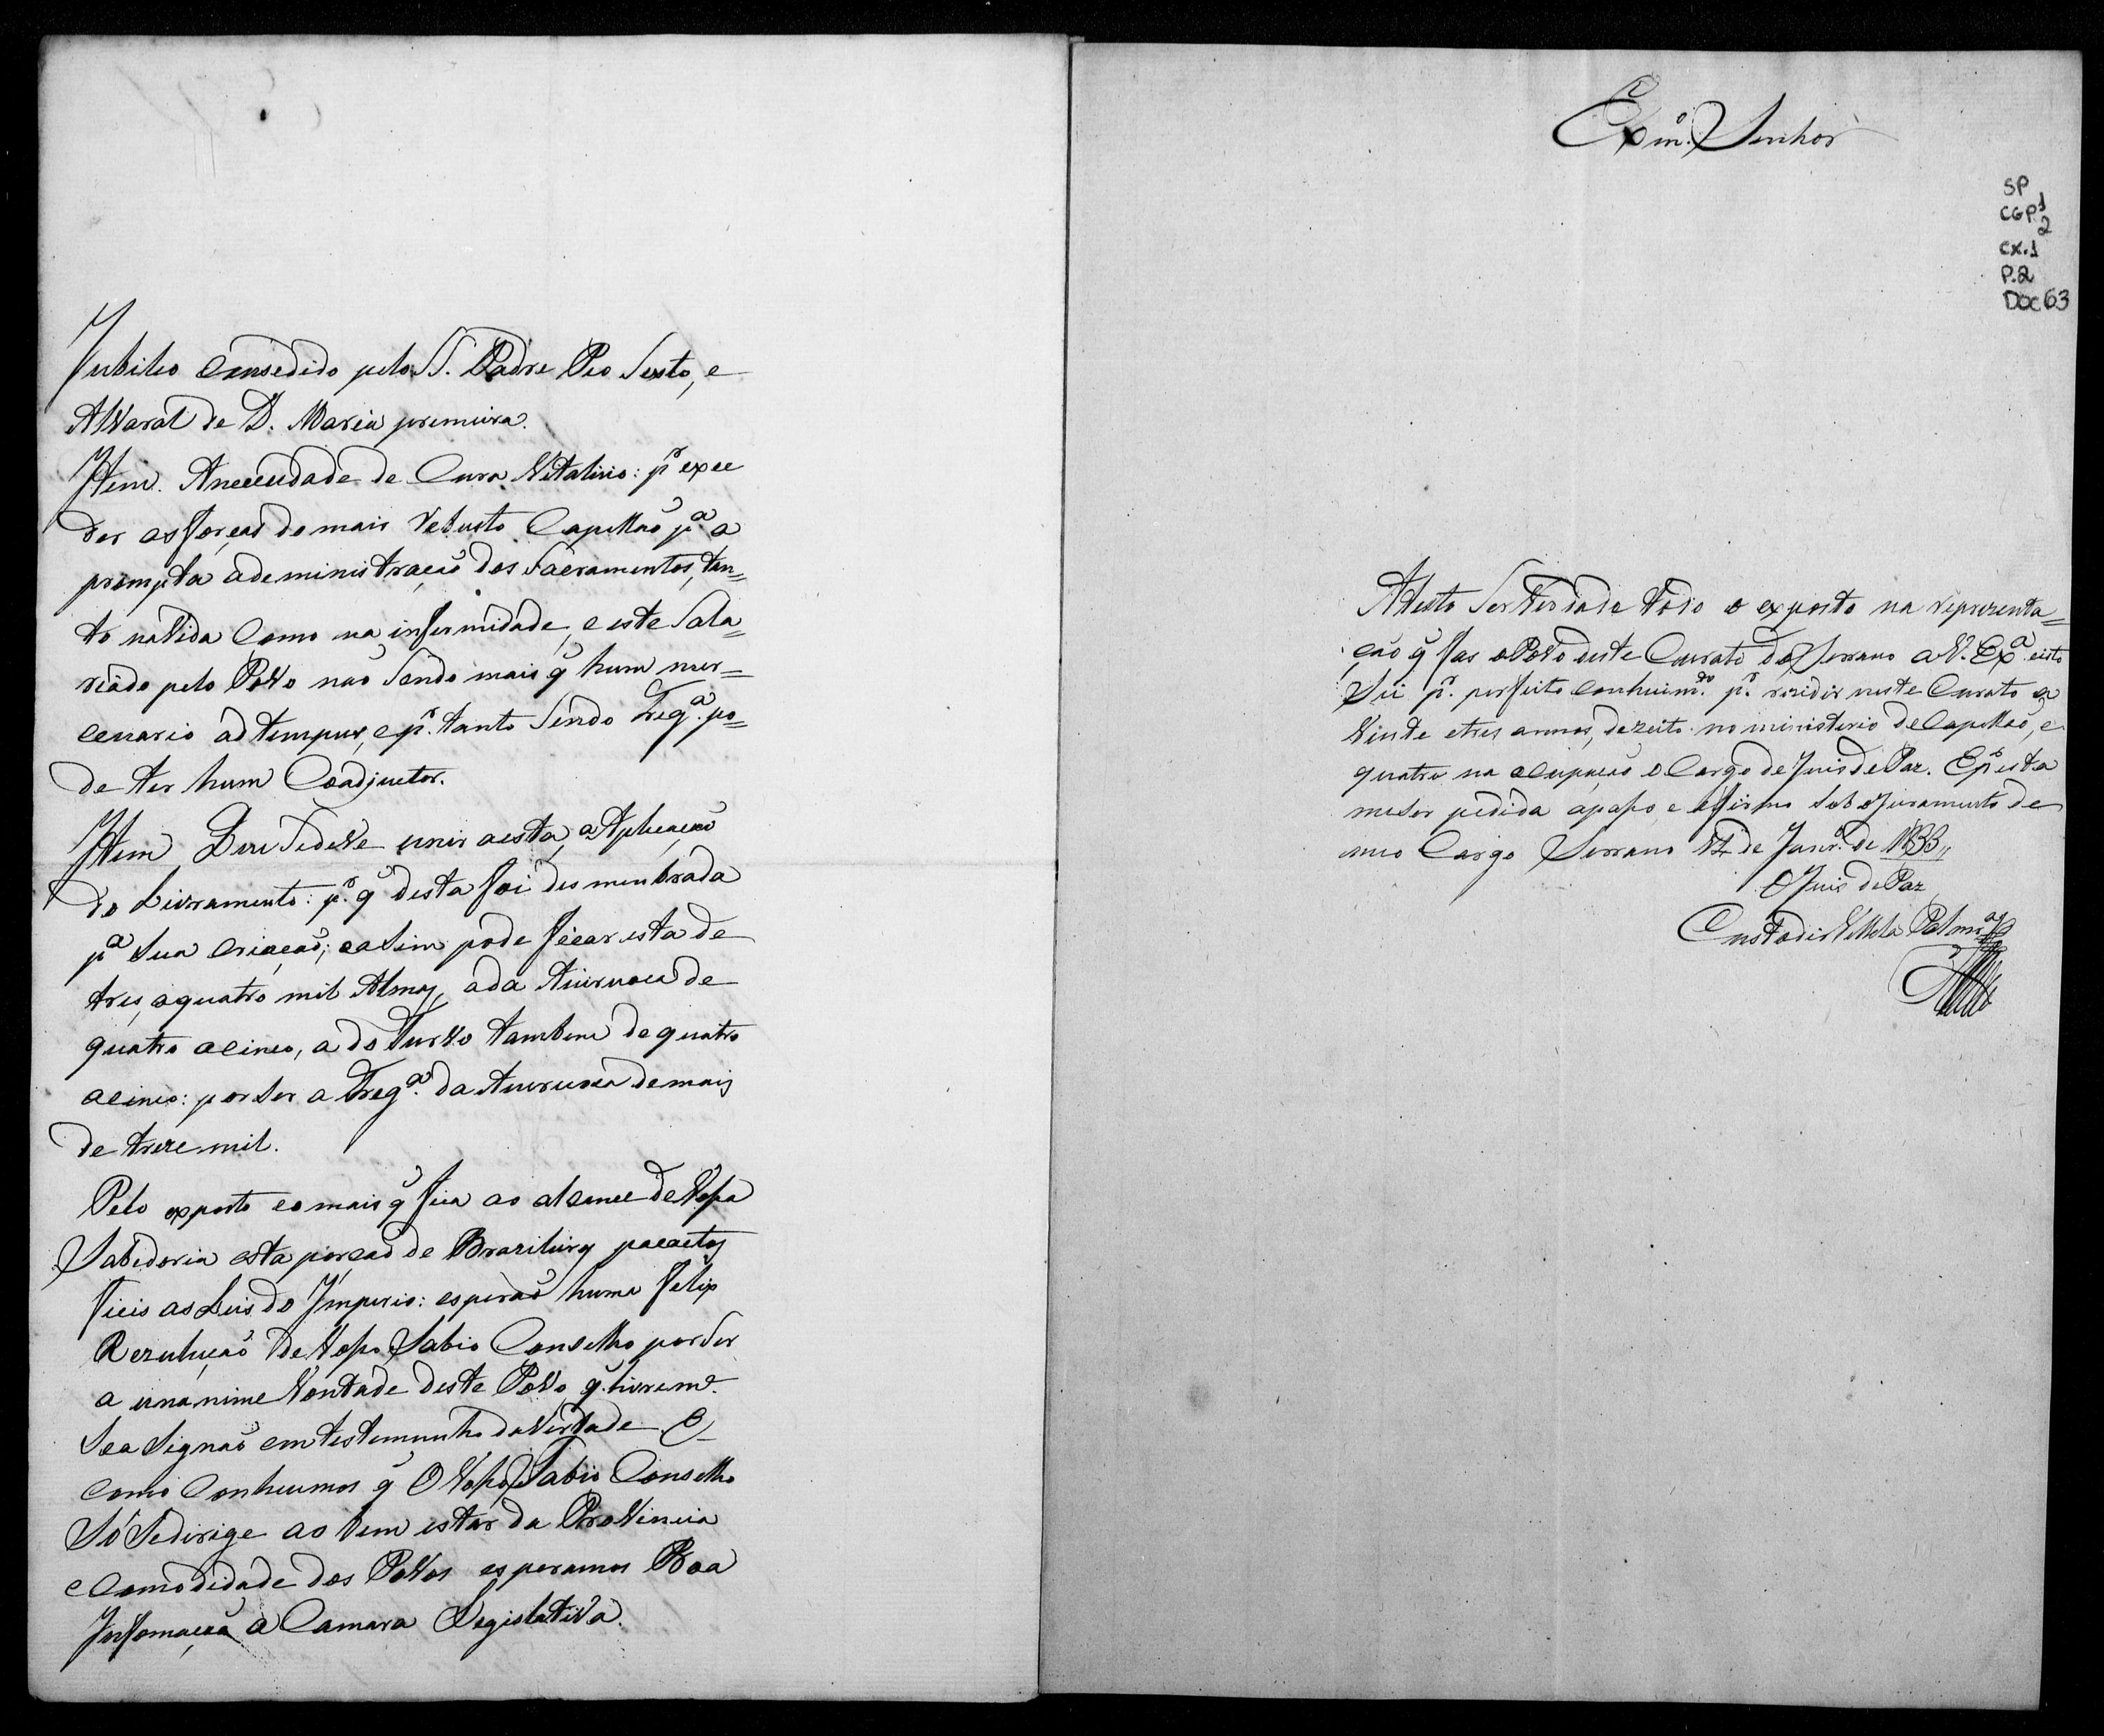 Jubileo Comsedido pelo S. Padre Pio Sexto, e
Alvaral de D. Maria premeira.
Item. A necessidade de Cura Vitalicio: pr exce
der as forças do mais Vebusto Capellaõ pa a
prompta adeministraçaõ dos Sacramentos, tan=
to na Vida Como na infermidade, e este Sala=
riádo pelo Povo naõ Sendo mais q̃ hum mer=
cenario ad tempus, e pr. tanto Sendo Frega. po=
de ter hum Coadjuctor.
Item Deve Sedeve unir a esta, a Aplicaçaõ
do Livramento: pr. q̃ desta foi desmenbrada
pa Sua Criaçaõ; e asim pode ficar esta de
tres, a quatro mil Almas, a da Aiuruoca de
quatro a cinco, a do Turvo tambem de quatro
a cinco: por Ser a Frega. da Aiuruoca de mais
de treze mil.
Pelo exposto e o mais q̃ fica ao alcance de Vossa
Sabedoria esta porçaõ de Brazileiros pacatos
fieis as Leis do Imperio: esperaõ huma felix
Rezuluçaõ de Vosso Sabio Conselho por Ser
a unanime Vontade deste Povo, q̃. livreme.
Se a Signaõ em testemunho da Verdade E
como Conhecemos q̃ O Vosso Sabio Conselho
Só Sedirige ao bem estar da Provincia
e Comodidade dos Povos esperamos Boa
Infomaçaã a Camara Legislativa.
Exmo. Senhor
SP
CGP1
2
cx.1
P.2
Doc 63
Atesto Ser Verdade todo o exposto na reprezenta=
çaõ q̃ fas o Povo deste Curato do Serrano a V. Exa. eisto
Sei pr. perfeito conhecimto. pr. rezidir neste Curato a
Vinte etres annos, dezoito no ministerio de Capellaõ, e
quatro na ocupaçaõ o Cargo de Juis de Paz. E pr esta
meser pedida apasso, e afirmo Sob o Juramento de
meu Cargo Serrano 14 de Janro. de 1833,,
O Juis de Paz
Custodio Vilella Palma